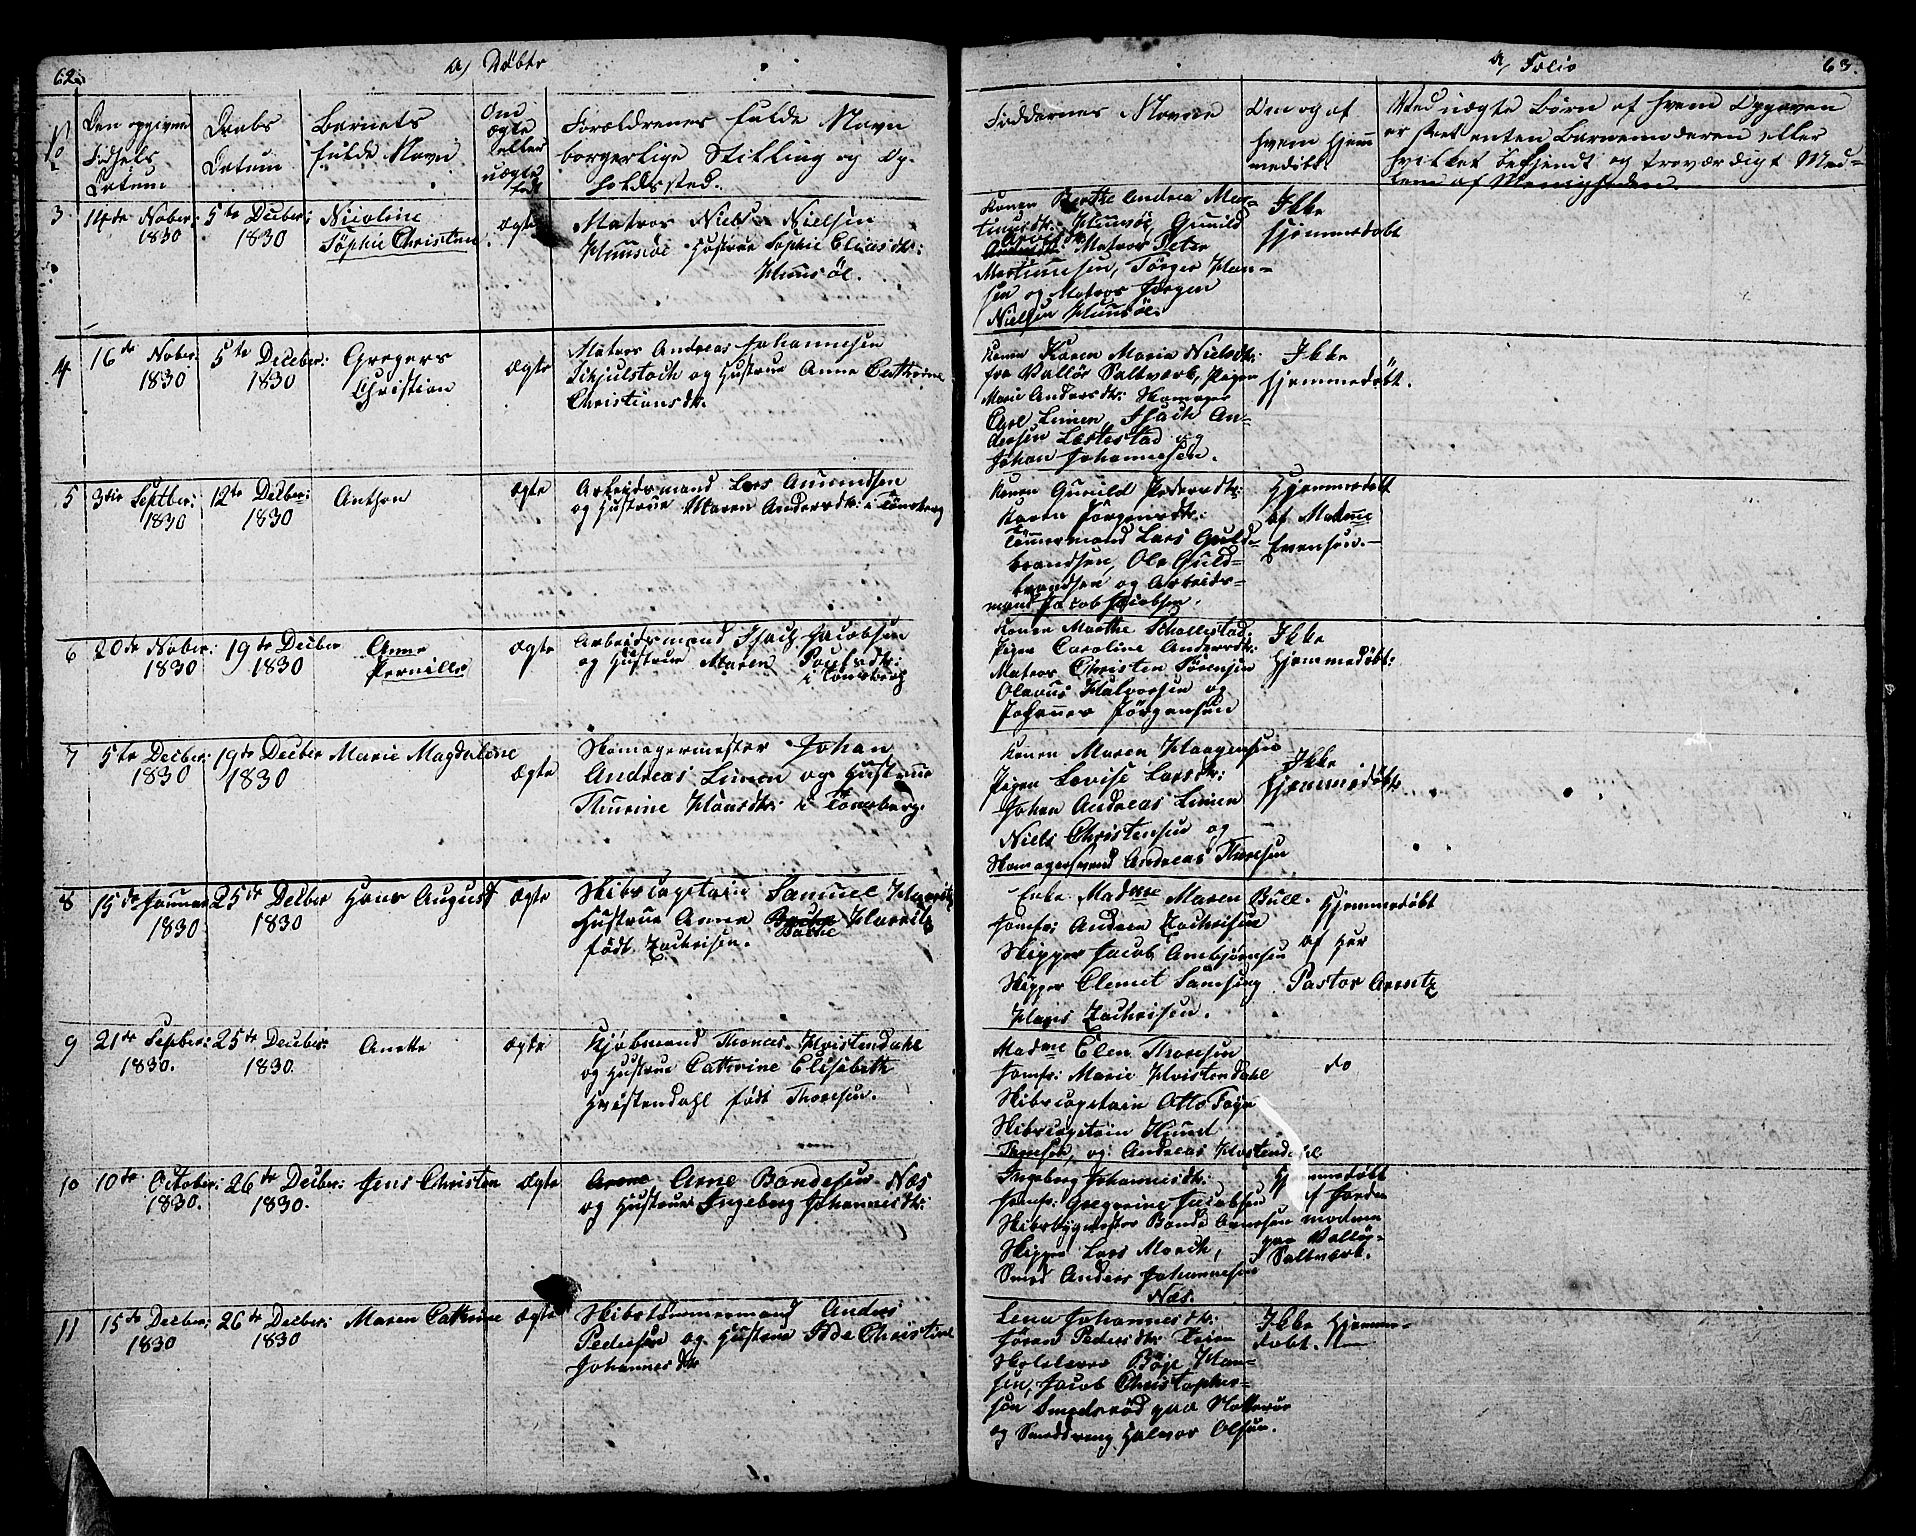 62.
a, Døbte
No
Den opgivne
Fødsels
Datum
Daabs
Datum
Barnets
fulde Navn
Om
ægte
eller
uægte
født
Forældrenes fulde Navn
borgerlige Stilling og Op-
holdssted.
3
14de Nober:
1830
5te Decber:
1830
Nicoline
Sophie Christine
ægte
Matros Niels Nielsen
Huusöe Hustrue Sophie Eliasdtr:
4
16de Nober:
1830
5te Decber:
1830
Gregers
Christian
ægte
Matros Andreas Johannesen
og Hustrue Anne Cathrine
Christiansdtr.
5
3die Septber:
1830
12te Decber:
1830
Anthon
ægte
Arbeidsmand Lars Amundsen
og Hustrue Maren Andersdtr: i Tönsberg
6
20de Nober:
1830
19de Decber
1830
Anne
Pernille
ægte
Arbeidsmand Isach Jacobsen
og Hustrue Maren Poulsdtr:
i Tönsberg
7
5te Decber:
1830
19de Decber
1830
Marie Magdalene
ægte
Skomagermester Johan
Andreas Limen og Hustrue
Thurine Hansdtr: i Tönsberg.
8
15de Januar
1830
25de Decber
1830
Hans August
ægte
Skibscapitain Samuel
Hustrue Anne
Bolette
født Zachrisen.
9
21de Septber:
1830.
25de Decber:
1830.
Anette
ægte
Kjøbmand Thomas Hvistendahl
og Hustrue Cathrine Elisabeth
Hvistendahl født Thoresen.
10
10de October:
1830.
26de Decber:
1830.
Jens Christen
ægte
Arne Bondesen Næs
og Hustrue Ingeborg Johannesdtr:
11
15de Decber:
1830
26de Decber:
1830
Maren Cathrine
ægte
Skibstömmermand Anders
Pedersen og Hustrue Christine
Johannesdtr
a, Folio
63.
Faddernes Navne
Om og af
hvem hjem-
medöbt.
Ved uægte Børn af hvem Opgaven
er skeet enten Barnemoderen eller
hvilket bekjendt og troværdigt Med-
lem af Menigheden.
Konen Berthe Andrea Mar-
tinusdtr: Gunild
Matros Peter
Martinusen, Törger Han-
sen og Matros Jörgen
Nielsen
Ikke
hjemmedøbt
Konen Karen Marie Nielsdtr:
fra Vallöe Saltværk, Pigen
Marie Andersdtr: Skomager
Carl Limen, Isach An-
dersen og
Johan Johannesen.
Ikke
hjemmedøbt.
Konen Gunild Pedersdtr:
Karen Jörgensdtr:
Tömmermand Lars Guld-
brandsen, Ole Guld-
brandsen og Arbeids-
mand Jacob
Hjemmedøbt
af Madme
Evensen.
Konen Marthe
Pigen Caroline Andersdtr:
Matros Christen Sörensen
Olavus Halvorsen og
Johannes Jörgensen
Ikke
hjemmedøbt:
Konen Maren Haagensen
Pigen Lovise Larsdtr:
Johan Andreas Limen
Niels Christensen og
Skomagersvend Andreas Thoresen
Ikke
hjemmedøbt
Enke Madme Maren Bull.
Jomfr: Andrea Zachrisen
Skipper Jacob Ambjörnsen
Skipper Clemet
Hans Zachrisen.
Hjemmedøbt
af Her
Pastor Arentz
Madme Elen Thoresen
Jomfr: Marie Hvistendahl
Skibscapitain Otto Foyn
Skibscapitain Knud
og Andreas Hvistendahl
do
Ingeborg Johannesdtr:
Jomfr: Gregerine Jacobsen
Skibsbygmester Bonde Arnesen
Skipper Lars Morch,
Smed Anders Johannesen
Næs.
Hjemmedøbt
af Jorde-
modren
paa Vallöe
Saltværk.
Lena Johannesdtr:
Jöran Pedersdtr:
Skolelærer Böje Han-
sen, Jacob Christopher-
sön Smedsröd paa Nötteröe
og Smeddreng Halvor Olsen.
Ikke hjemme-
døbt.